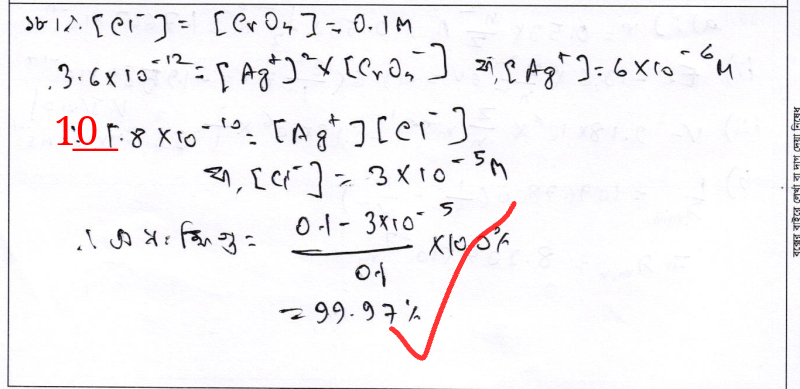 [Cl⁻] = [CrO₄] = 0.1M
3.6×10⁻¹² = [Ag⁺]² × [CrO₄⁻] বা, [Ag⁺] = 6×10⁻⁶M
10
1.8 × 10⁻¹⁰ = [Ag⁺][Cl⁻]
বা, [Cl⁻] = 3×10⁻⁵M
= 0.1 - 3×10⁻⁵ / 0.1 × 100%
= 99.97%
বক্সের বাইরে লেখা বা দাগ দেয়া নিষেধ